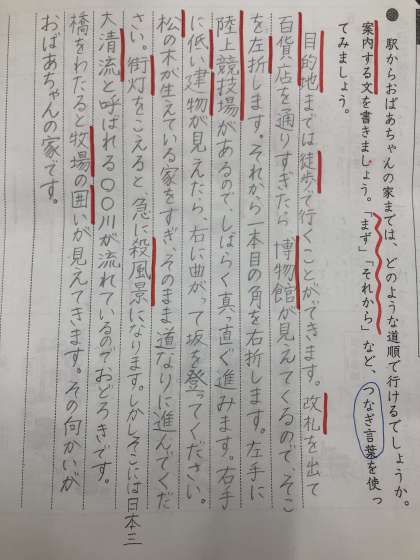 駅からおばあちゃんの家までは、どのような道順で行けるでしょうか。
案内する文を書きましょう。「まず」「それから」など、つなぎ言葉を使っ
てみましょう。
目的地までは徒歩で行くことができます。改札を出て
百貨店を通りすぎたら、博物館が見えてくるので、そこ
を左折します。それから一本目の角を右折します。左手に
陸上競技場があるので、しばらく真っ直ぐ進みます。右手
に低い建物が見えたら、右に曲がって坂を登ってください。
松の木が生えている家をすぎ、そのまま道なりに進んでくだ
さい。街灯をこえると、急に殺風景になります。しかしそこには日本三
大清流と呼ばれる〇〇川が流れているのでおどろきです。
橋をわたると牧場の囲いが見えてきます。その向かいが
おばあちゃんの家です。